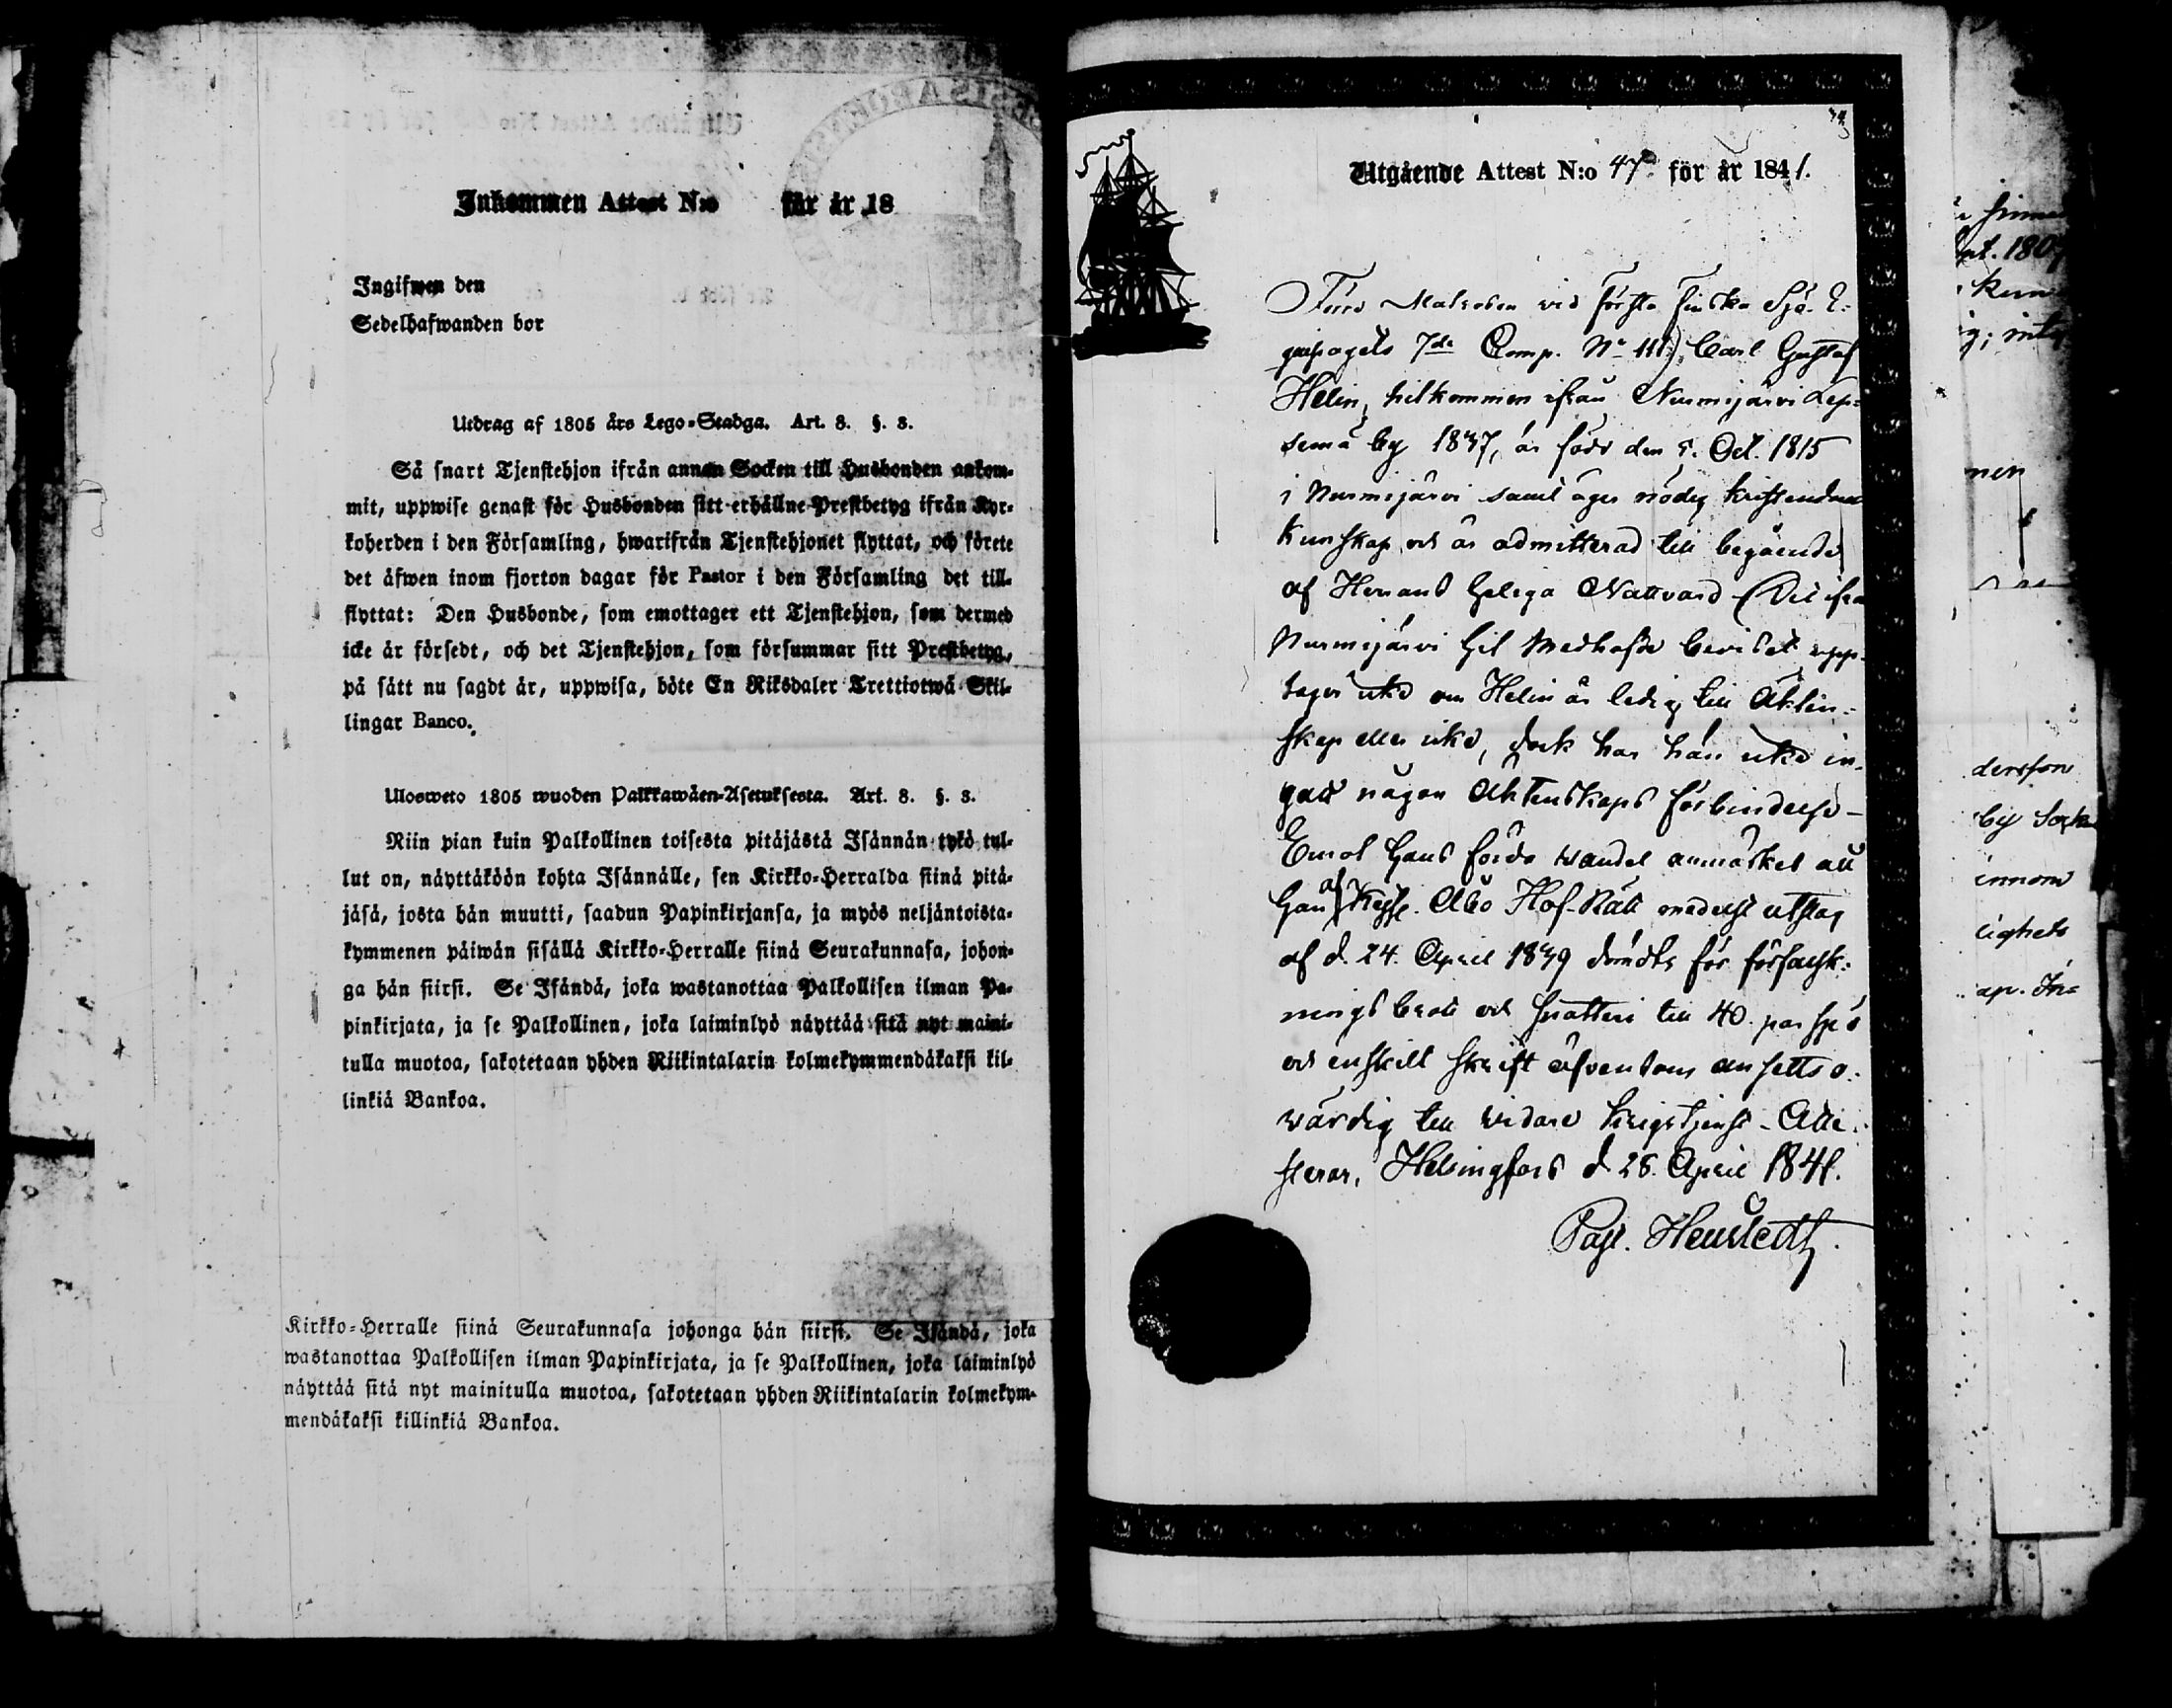 Inkommen Attest N:o för år 18
Ingifwen den
Sedelhafwanden bor
Utdrag af 1805 års Lego-Stadga. Art. 8. §. 3.
Så snart Tjenstehjon ifrån annan Socken till Husbonden ankom-
mit, uppwise genast för Husbonden sitt erhållne Prestbetyg ifrån Kyr-
koherden i den Församling, hwarifrån Tjenstehjonet flyttat, och förete
det äfwen inom fjorton dagar för Pastor i den Församling det till-
flyttat: Den Husbonde, som emottager ett Tjenstehjon, som dermed
icke är försedt, och det Tjenstehjon, som försummar sitt Prestbetyg,
på sätt nu sagdt är, uppwisa, böte En Riksdaler Trettiotwå Skil-
lingar Banco.
Ulosweto 1805 wuoden Palkkawäen-Asetuksesta. Art. 8. §. 3.
Niin pian kuin Palkollinen toisesta pitäjästä Isännän tykö tul-
lut on, näyttäköön kohta Isännälle, sen Kirkko-Herralda siinä pitä-
jäsä, josta hän muutti, saadun Papinkirjansa, ja myös neljäntoista-
kymmenen päiwän sisällä Kirkko-Herralle siinä Seurakunnasa, johon-
ga hän siirsi. Se Isändä, joka wastanottaa Palkollisen ilman Pa-
pinkirjata, ja se Palkollinen, joka laiminlyö näyttää sitä nyt maini-
tulla muotoa, sakotetaan yhden Riikintalarin kolmekymmendäkaksi kil-
linkiä Bankoa.
Kirkko-Herralle siinä Seurakunnasa johonga hän siirsi. Se Isändä, joka
wastanottaa Palkollisen ilman Papinkirjata, ja se Palkollinen, joka laiminlyö
näyttää sitä nyt mainitulla muotoa, sakotetaan yhden Riikintalarin kolmekym-
mendäkaksi killinkiä Bankoa.
Utgående Attest N:o 47 för år 1841.
Förre Matrosen vid första Finska Sjö-E-
quipagets 7de Comp. No 111, Carl Gustaf
Helin, hitkommen ifrån Nurmijärvi Lep-
semä by 1837, är född den 5. Oct. 1815
i Nurmijärvi samt äger nödig kristendoms
kunskap och är admitterad till begående
af Herrans heliga Nattvard (Det ifrån
Nurmijärvi hit medhafde beviset upp-
tager icke om Helin är ledig till Äkten-
skap eller icke, dock har han icke in-
gått någon Äktenskaps förbindelse -
Emot hans förda vandel anmärkes att
han af Kejs. Åbo Hof-Rätt medelst utslag
af d. 24. April 1839 dömdts för förfalsk-
nings brott och snatteri till 40 par spö
och enskilt skrift äfvensom ansetts o-
värdig till vidare krigstjenst - Atte-
sterar, Helsingfors d. 28. April 1841.
Past.
dersson
by Sock
innom
lighets
ap. In=